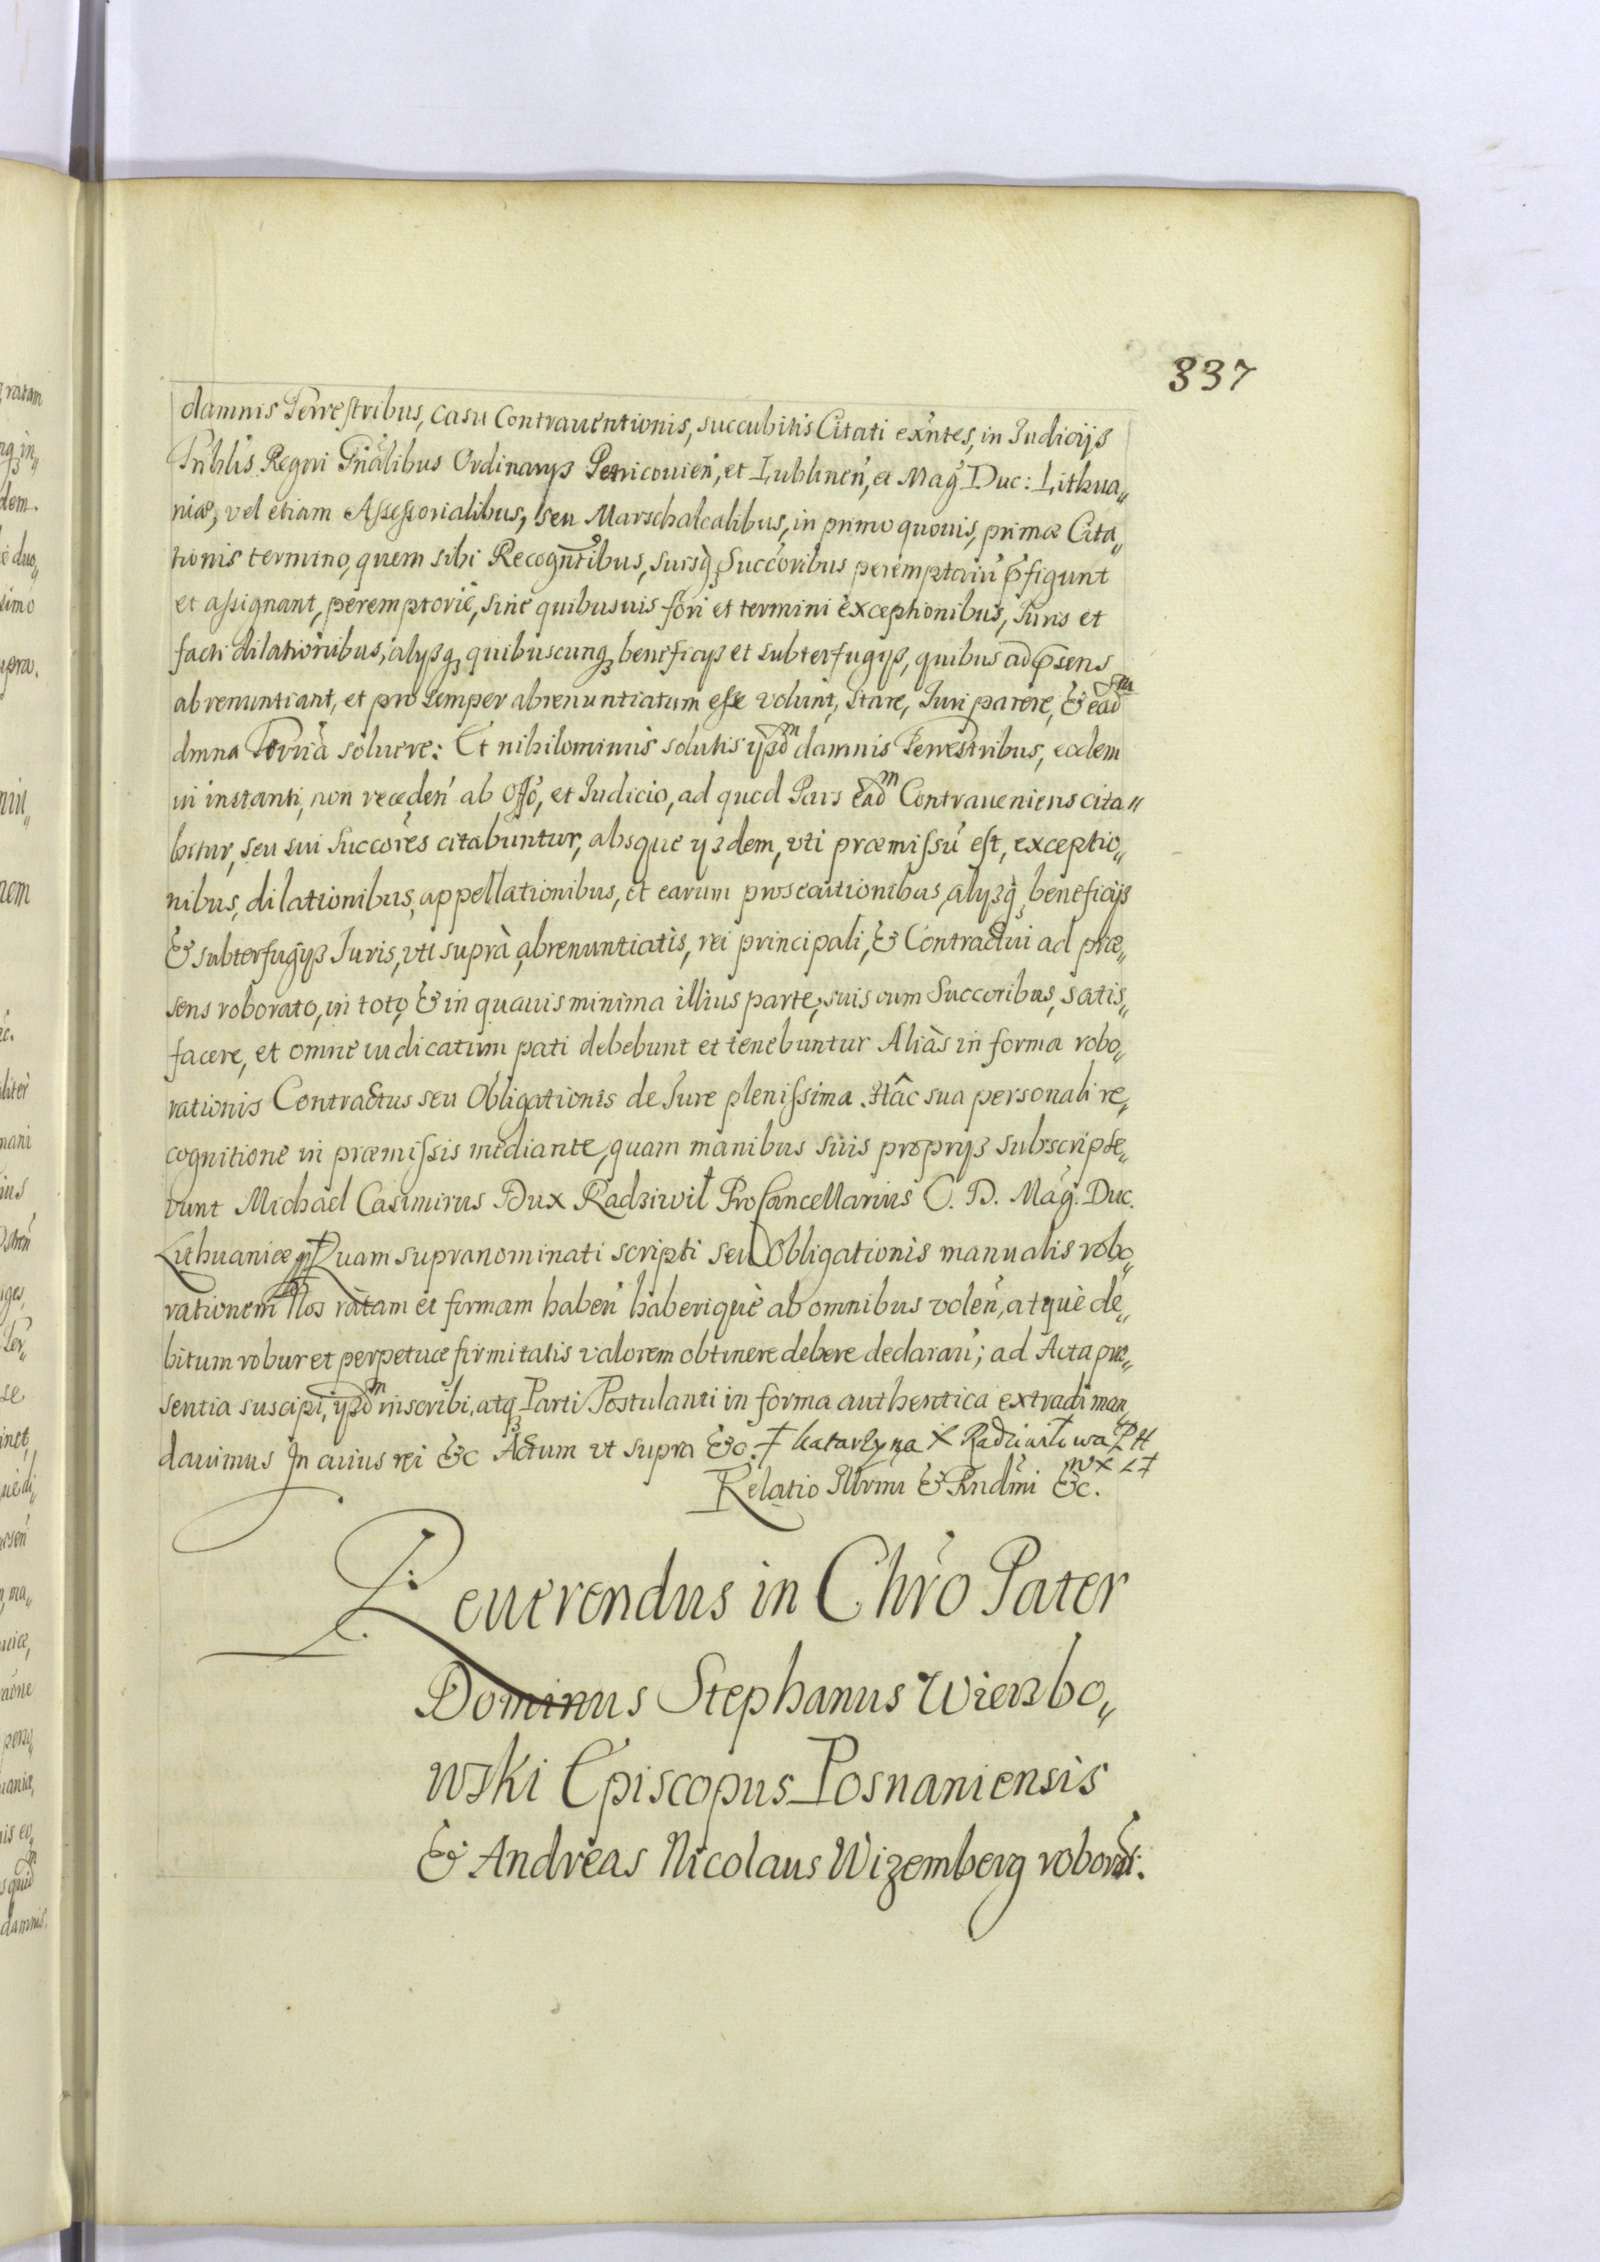 337
damnis Terrestribus, casu Contrauentionis, succubitis Citati exñtes, in Judicijs
Pnblis Regni Gñalibus Ordinarys Petricouień, et Lublineń, et Mag. Duc: Lithua„
niæ, vel etiam Assessorialibus, seu Marschalcalibus, in primo quouis, primæ Cita„
tionis termino, quem sibi Recogntibus, suisq Succoribus peremptoriu p̄figunt
et assignant, peremptorie, sine quibusuis fori et termini exceptionibus, Iuris et
facti dilationibus, alysq quibuscunq beneficys et subterfugys, quibus ad p̄sens
abrenuntiant, et pro semper abrenuntiatum esse volunt, stare, Iuri parere, & eadm
dmna Terria soluere: Et nihilominus solutis ysdm damnis Terrestribus, eodem
in instanti, non receden ab Offo, et Iudicio, ad quod Pars eadm Contraueniens cita„
bitur, seu sui Succores citabuntur, absque ysdem, vti præmissu est, exceptio„
nibus, dilationibus, appellationibus, et earum prosecutionibus, alysq beneficijs
& subterfugys Iuris, vti suprà abrenuntiatis, rei principali, & Contractui ad præ„
sens roborato, in toto, & in quauis minima illius parte, suis cum Succoribus, satis„
facere, et omne iudicatum pati debebunt et tenebuntur Aliàs in forma robo„
rationis Contractus seu Obligationis de Iure plenissima. Hâc sua personali re„
cognitione in præmissis mediante, quam manibus suis proprys subscripse„
runt Michael Casimirus Dux Radziwił ProCancellarius C. D. Mag. Duc.
Lithuaniæ Quam supranominati scripti seu Obligationis manualis robo„
rationem Nos ratam et firmam haben haberiquè ab omnibus volen, atquè de„
bitum robur et perpetuæ firmitatis valorem obtinere debere declaran; ad Acta præ„
sentia suscipi, ysdm inscribi, atq Parti Postulanti in forma authentica extradi man„
dauimus In cuius rei &c Actum vt supra &c. Katarzyna X Radziwiłowa P H
W X L
Relatio Illrmi & Rndmi &c.
Reuerendus in Chro Pater
Dominus Stephanus Wierzbo„
wski Episcopus Posnaniensis
& Andreas Nicolaus Wizemberg roborat.